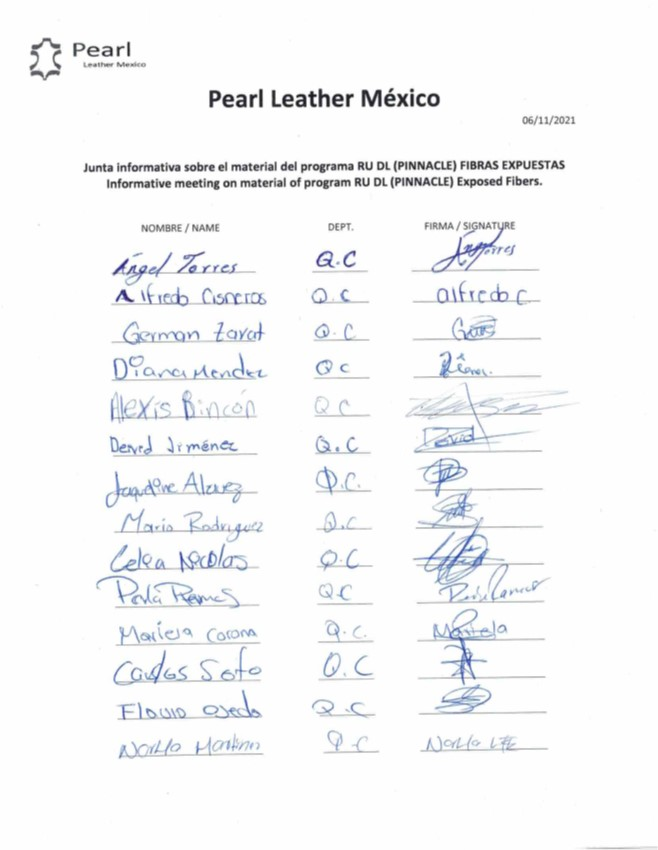 Pearl
Leather Mexico
Pearl Leather México
06/11/2021
Junta informativa sobre el material del programa RU DL (PINNACLE) FIBRAS EXPUESTAS
Informative meeting on material of program RU DL (PINNACLE) Exposed Fibers.
NOMBRE / NAME DEPT. FIRMA / SIGNATURE
Ángel Torres Q.C
Alfredo Cisneros Q.C alfredo C
German Q.C
Diana Mendez QC
Alexis QC
Jiménez Q.C David
Q.C.
Mario Rodriguez Q.C
Nicolas Q.C
Ramos QC
Corona Q.C.
Carlos Soto Q.C
Ojeda Q.C
Q.C